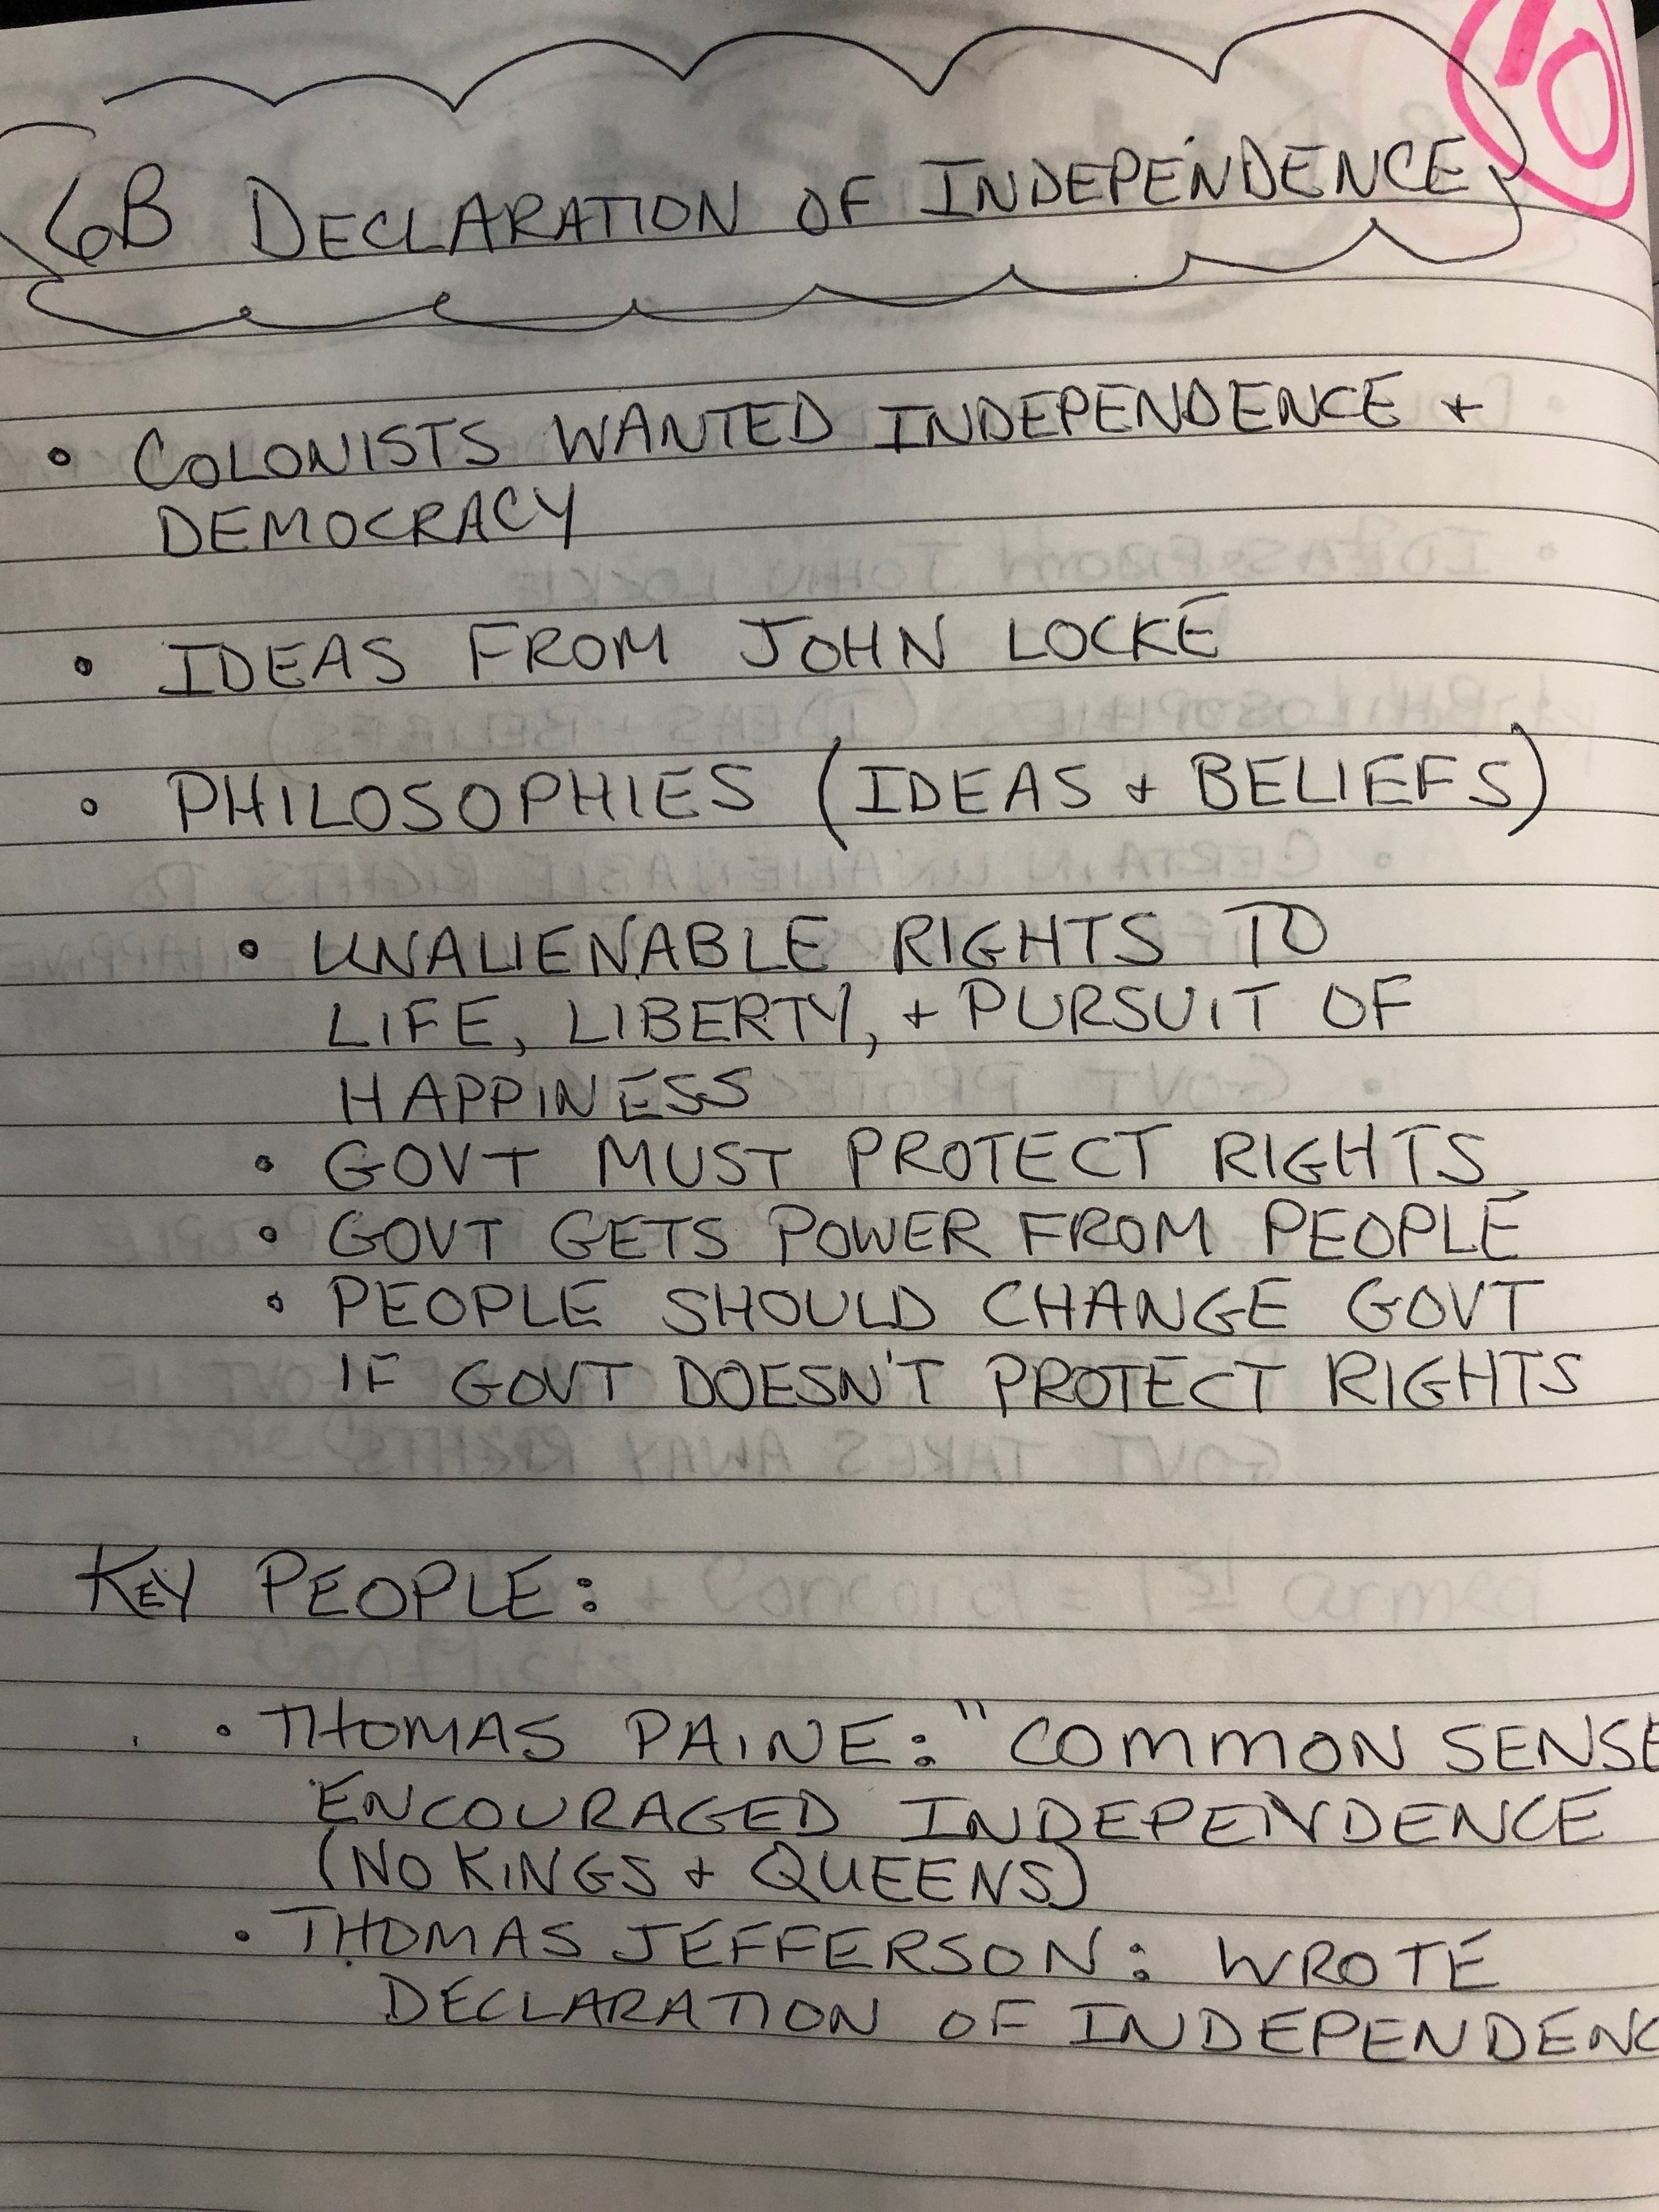 10
6B DECLARATION OF INDEPENDENCE
• COLONISTS WANTED INDEPENDENCE +
DEMOCRACY
• IDEAS FROM JOHN LOCKE
• PHILOSOPHIES (IDEAS + BELIEFS)
• UNALIENABLE RIGHTS TO
LIFE, LIBERTY, + PURSUIT OF
HAPPINESS
• GOVT MUST PROTECT RIGHTS
• GOVT GETS POWER FROM PEOPLE
• PEOPLE SHOULD CHANGE GOVT
IF GOVT DOESN'T PROTECT RIGHTS
KEY PEOPLE:
• THOMAS PAINE: "COMMON SENSE
ENCOURAGED INDEPENDENCE
(NO KINGS + QUEENS)
• THOMAS JEFFERSON: WROTE
DECLARATION OF INDEPENDENC